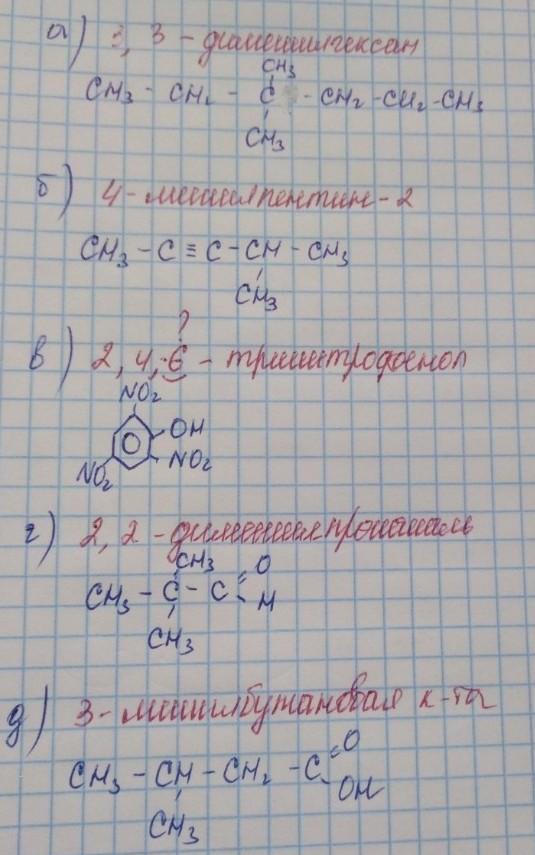 а) 3, 3 - диметилгексан
CH3
CH3 - CH2 - C - CH2 - CH2 - CH3
CH3
б) 4 - метилпентин - 2
CH3 - C ≡ C - CH - CH3
CH3
?
в) 2, 4, 6 - тринитрофенол
NO2
OH
NO2
NO2
г) 2, 2 - диметилпропаналь
CH3
CH3 - C - C = O
- H
CH3
д) 3 - метилбутановая к-та
CH3 - CH - CH2 - C = O
- OH
CH3